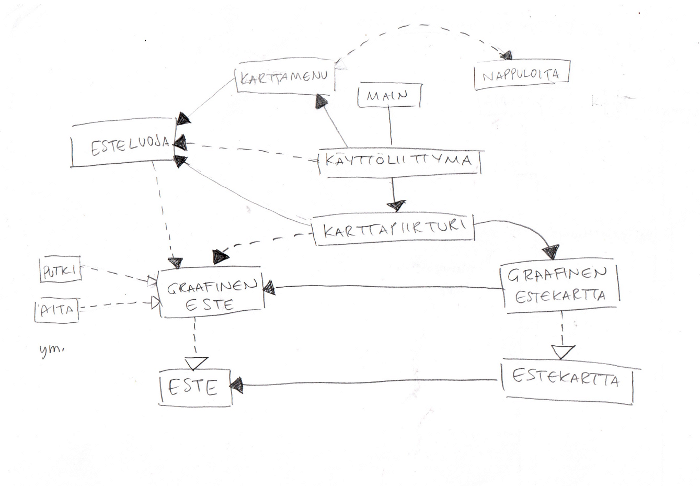 KARTTAMENU
NAPPULOITA
MAIN
ESTELUOJA
KÄYTTÖLIITTYMA
KARTTAPIIRTURI
PUTKI
GRAAFINEN
ESTE
GRAAFINEN
ESTEKARTTA
AITA
ym.
ESTE
ESTEKARTTA